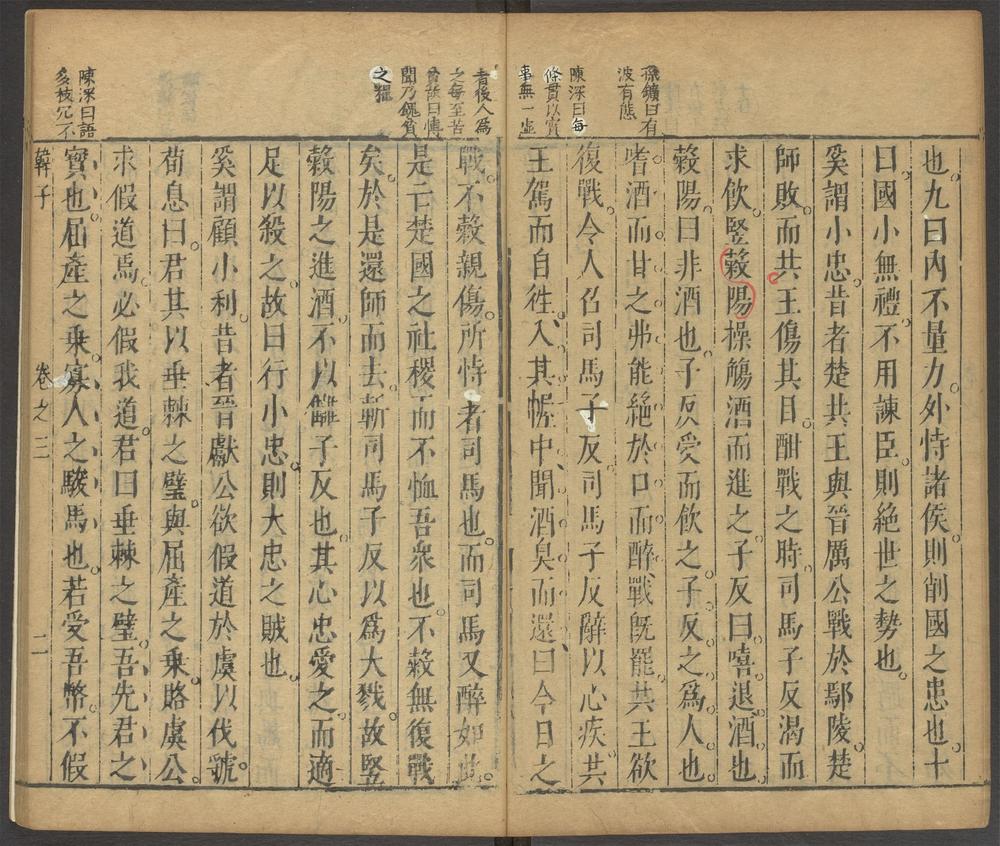 孫鑛曰有
波有態
陳深曰每
條貫以實
事無一虛
也九曰內不量力外恃諸侯則削國之患也十
曰國小無禮不用諫臣則絕世之勢也
奚謂小忠昔者楚共王與晉厲公戰於鄢陵楚
師敗而共王傷其目酣戰之時司馬子反渴而
求飲竪穀陽操觴酒而進之子反曰嘻退酒也
穀陽曰非酒也子反受而飲之子反之為人也
嗜酒而甘之弗能絕於口而醉戰既罷共王欲
復戰令人召司馬子反司馬子反辭以心疾共
王駕而自徃入其幄中聞酒臭而還曰今日之
者後人為
之每至苦
曾茂曰傳
聞乃餽貧
之糧
戰不穀親傷所恃者司馬也而司馬又醉如此
是亡楚國之社稷而不恤吾衆也不穀無復戰
矣於是還師而去斬司馬子反以爲大戮故竪
穀陽之進酒不以讎子反也其心忠愛之而適
足以殺之故曰行小忠則大忠之賊也
奚謂顧小利昔者晉獻公欲假道於虞以伐虢
荀息曰君其以垂棘之璧與屈產之乗賂虞公
求假道焉必假我道君曰垂棘之璧吾先君之
寳也屈產之乗寡人之駿馬也若受吾幣不假
陳深曰語
多枝冗不
韓子
卷之三
二